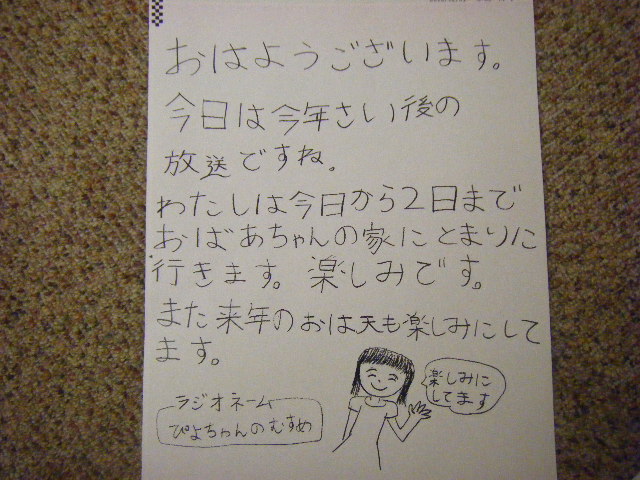 おはようございます。
今日は今年さい後の
放送ですね。
わたしは今日から2日まで
おばあちゃんの家にとまりに
行きます。楽しみです。
また来年のおは天も楽しみにして
ます。
楽しみに
してます
ラジオネーム
ぴよちゃんのむすめ